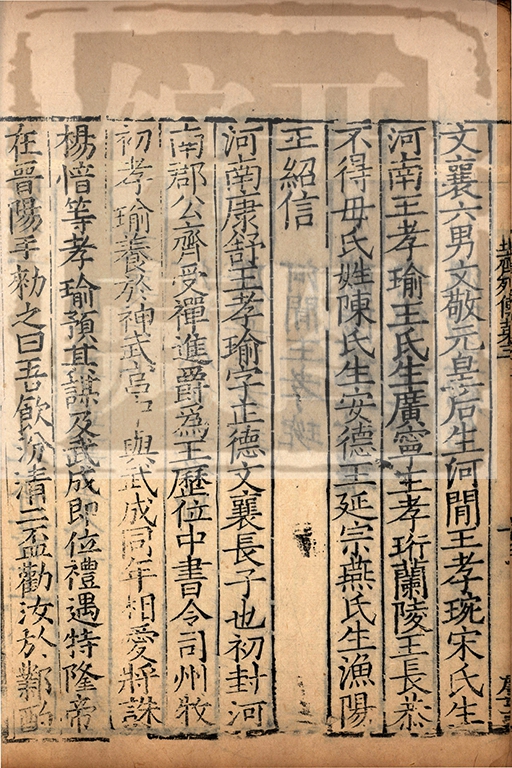 文襄六男文敬元皇后生河間王孝琬宋氏生
河南王孝瑜王氏生廣寧王孝珩蘭陵王長恭
不得母氏姓陳氏生安德王延宗燕氏生漁陽
王紹信
河南康舒王孝瑜字正德文襄長子也初封河
南郡公齊受禪進爵為王歷位中書令司州牧
初孝瑜養於神武宮中與武成同年相愛將誅
楊愔等孝瑜預其謀及武成即位禮遇特隆帝
在晉陽手勑之曰吾飲汾清二盃勸汝於鄴酌